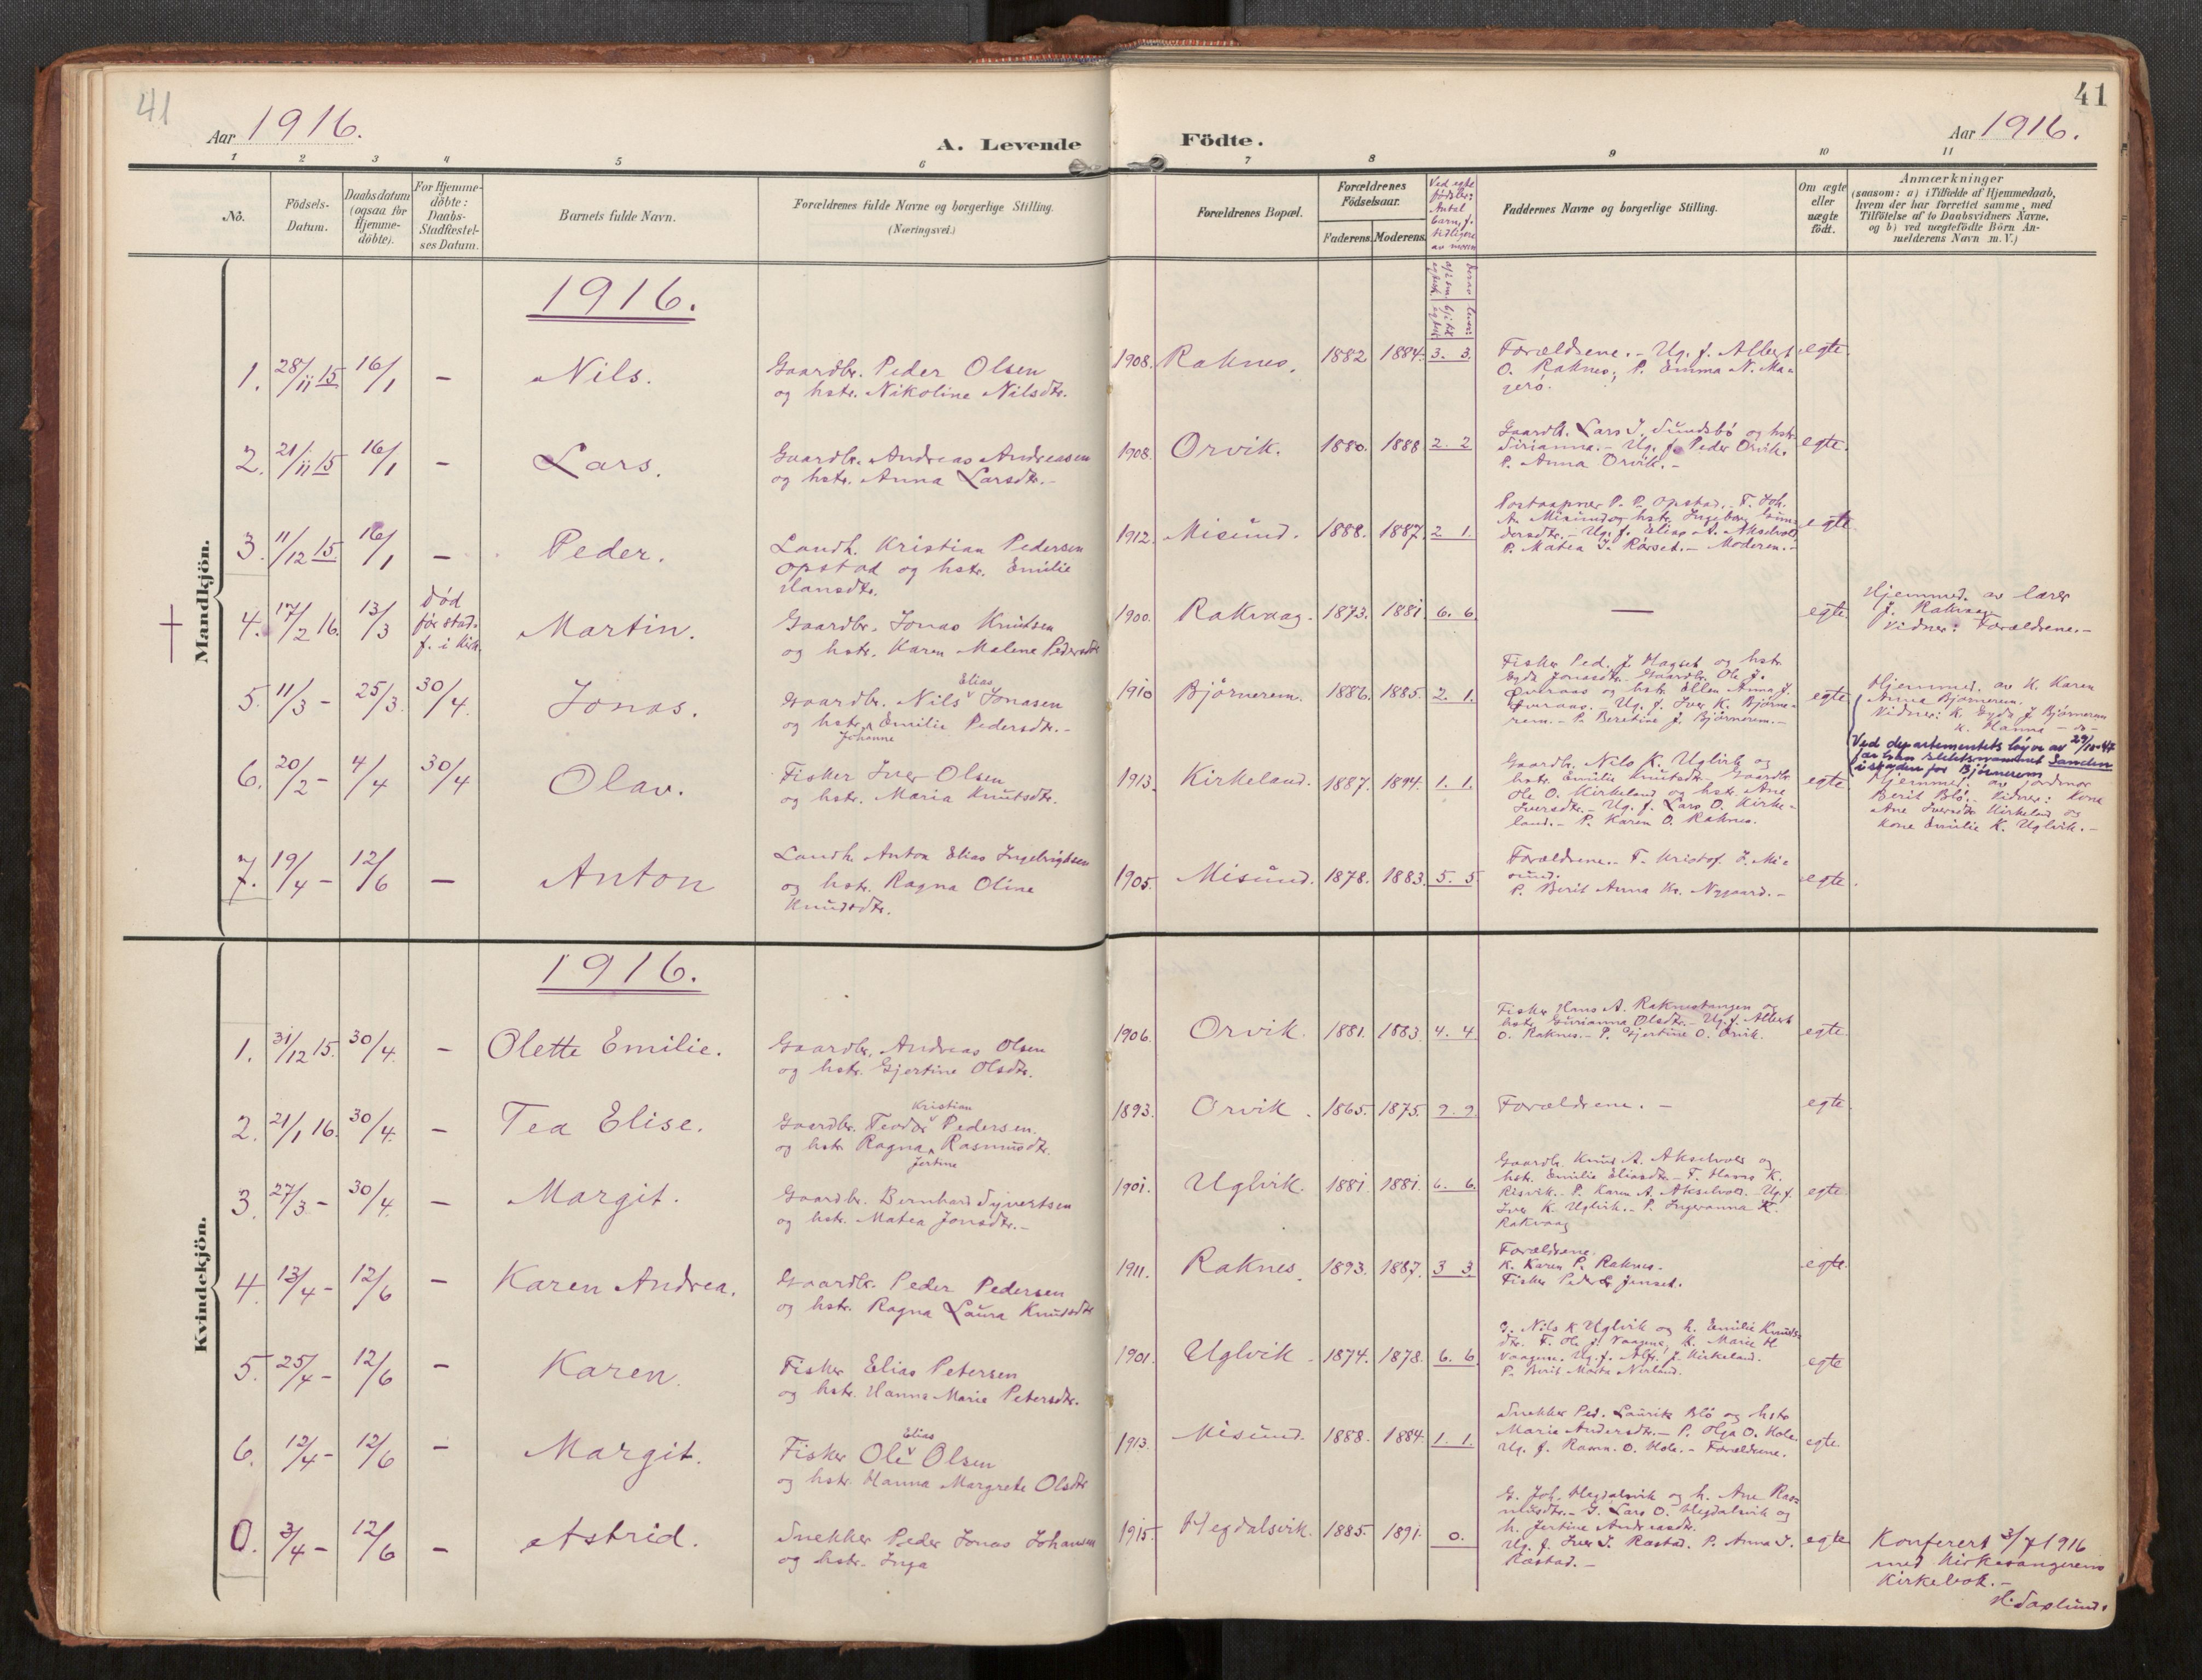 41
41
Aar 1916.
A. Levende
Födte.
Aar 1916.
1 2 3 4 5 6 7 8 9 10 11
No.
Födsels-
Datum.
Daabsdatum
(ogsaa for
Hjemme-
döbte).
For Hjemme-
döbte:
Daabs-
Stadfæstel-
ses Datum.
Barnets fulde Navn.
Forældrenes fulde Navne og borgerlige Stilling.
(Næringsvei.)
Forældrenes Bopæl.
Forældrenes
Födselsaar.
Faderens. Moderens.
Ved egte
fødsler:
Antal
barn, f.
tidligere
av moren
Faddernes Navne og borgerlige Stilling.
Om ægte
eller
uægte
födt.
Anmærkninger
(saasom: a) i Tilfælde af Hjemmedaab,
hvem der har forrettet samme, med
Tilföielse af to Daabsvidners Navne,
og b) ved uægtefödte Börn An-
melderens Navn m. V.)
Mandkjön.
1916.
1. 28/11 15 16/1 – Nils.
Gaardbr. Peder Olsen
og hstr. Nikoline Nilsdtr.
1908. Raknes. 1882 1884. 3. 3.
Forældrene. – Ug. f. Albert
O. Raknes, P. Emma N. Ma-
gerö.
egte.
2. 21/11 15 16/1 – Lars.
Gaardbr. Andreas Andreasen
og hstr. Anna Larsdtr. –
1908. Orvik. 1880. 1888 2. 2
Gaardb. Lars J. Sundsbö og hstr.
Sirianna. – Ug. f. Peder Orvik.
P. Anna Orvik. –
egte.
3. 11/12 15. 16/1 – Peder.
Landh. Kristian Pedersen
Opstad og hstr. Emilie
Hansdtr.
1912. Misund. 1888. 1887. 2. 1.
Postaapner P. P. Opstad. – F. Joh.
A. Misund og hstr. Ingeborg Gun-
dersdtr. – Ug. f. Elias A. Akselvold
P. Matea J. Rörset. – Moderen. –
egte.
4. 17/2 16. 13/3 Död
för stad-
f. i Kirk. Martin.
Gaardbr. Jonas Knutsen
og hstr. Karen Malene Pedersdtr
1900. Rakvaag. 1873. 1881. 6. 6.
—
egte.
Hjemmed. av lærer
J. Rakvaag
Vidner: Forældrene. –
5. 11/3 – 25/3. 30/4. Jonas.
Elias
Gaardbr. Nils Jonasen
og hstr. Emilie Pedersdtr. –
Johanne
1910 Björnerem. 1886. 1885. 2. 1.
Fisker Ped. J. Hagset og hstr.
Gyda Jonasdtr. Gaardbr. Ole J.
Överaas og hstr. Ellen Anna J.
Överaas. – Ug. f. Iver K. Björne-
rem. – P. Beretine J. Björnerem. –
egte.
Hjemmed. av K. Karen
Anna Björnerem.
Vidner: K. Gyda J Björnerem
K. Hanna – do –
Ved departementets løyve av 29/10-47
før han slektsnamnet Sanden
i staden for Bjørnerem
6. 20/2 – 4/4 30/4 Olav.
Fisker Iver Olsen
og hstr. Maria Knutsdtr.
1913. Kirkeland. 1887. 1894. 1. 1.
Gaardbr. Nils K. Uglvik og
hstr. Emilie Knutsdtr. Gaardbr.
Ole O. Kirkeland og hstr. Ane
Iversdtr. – Ug. f. Lars O. Kirke-
land. – P. Karen O. Raknes.
egte.
Hjemmed. av jordmor
Berit Blö. – Vidner: Kone
Ane Iversdtr Kirkeland og
Kone Emilie K. Uglvik. –
7. 19/4 – 12/6 – Anton
Landh. Anton Elias Ingebrigtsen
og hstr. Ragna Oline
Knudsdtr.
1905. Misund. 1878. 1883. 5. 5
Forældrene. – F. Kristof. J. Mi-
sund.
P. Berit Anna Kr. Nygaard. –
egte.
Kvindekjön.
1916.
1. 31/12 15. 30/4. – Olette Emilie.
Gaardbr. Andreas Olsen
og hstr. Gjertine Olsdtr.
1906. Orvik. 1881. 1883. 4. 4
Fisker Hans A. Raknestangen og
hstr. Gurianna Olsdtr. – Ug. f. Albert
O. Raknes. – P. Gjertine O. Orvik.
egte.
2. 21/1 16. 30/4. – Tea Elise.
Kristian
Gaardbr. Teodor Pedersen.
og hstr Ragna Rasmusdtr.
Jertine
1893. Orvik. 1865. 1875. 9. 9.
Forældrene. –
egte.
3. 27/3 – 30/4. – Margit.
Gaardbr. Bernhard Syvertsen
og hstr. Matea Jonsdtr. –
1901. Uglvik. 1881 1881. 6. 6.
Gaardb. Knut A. Akselvold og
hstr. Emilie Eliasdtr – F. Hans K.
Risvik. – P. Karen A. Akselvold. – Ug. f.
Iver K. Uglvik. – P. Ingeranna K.
Rakvaag
egte.
4. 13/4 – 12/6 – Karen Andrea.
Gaardbr. Peder Pedersen
og hstr. Ragna Laura Knudsdtr
1911. Raknes. 1893. 1887. 3 3.
Forældrene.
K. Karen P. Raknes.
Fisker Peder Jenset.
egte.
5. 25/4 – 12/6 – Karen.
Fisker Elias Petersen
og hstr. Hanna Marie Petersdtr.
1901. Uglvik. 1874. 1878. 6. 6.
G. Nils K Uglvik og h. Emilie Knuds-
dtr. F. Ole J. Vaagnes, K. Marie H
Vaagnes. Ug. f. Alfr. J. Kirkeland.
P. Berit Marta Nerland.
egte
6. 12/4 – 12/6 – Margit.
Elias
Fisker Ole Olsen
og hstr. Hanna Margrete Olsdtr
1913. Misund. 1888. 1884. 1. 1.
Snekker Ped. Laurits Blö og hstr
Marie Andersdtr. – P. Olga O. Hole.
Ug. f. Rasm. O. Hole. – Forældrene.
egte.
0. 3/4 – 12/6 – Astrid.
Snekker Peder Jonas Johansen
og hstr. Inga
1915. Hegdalsvik. 1885. 1891. 0.
G. Joh. Hegdalsvik og h. Ane Ras-
musdtr. – G. Lars O. Hegdalsvik og
h. Jertine Andreasdtr.
Ug. f. Iver J. Rastad. P. Anna J.
Rastad. –
egte
Konferert 3/7 1916
med Kirkesangerens
Kirkebok. –
H. Saxlund.